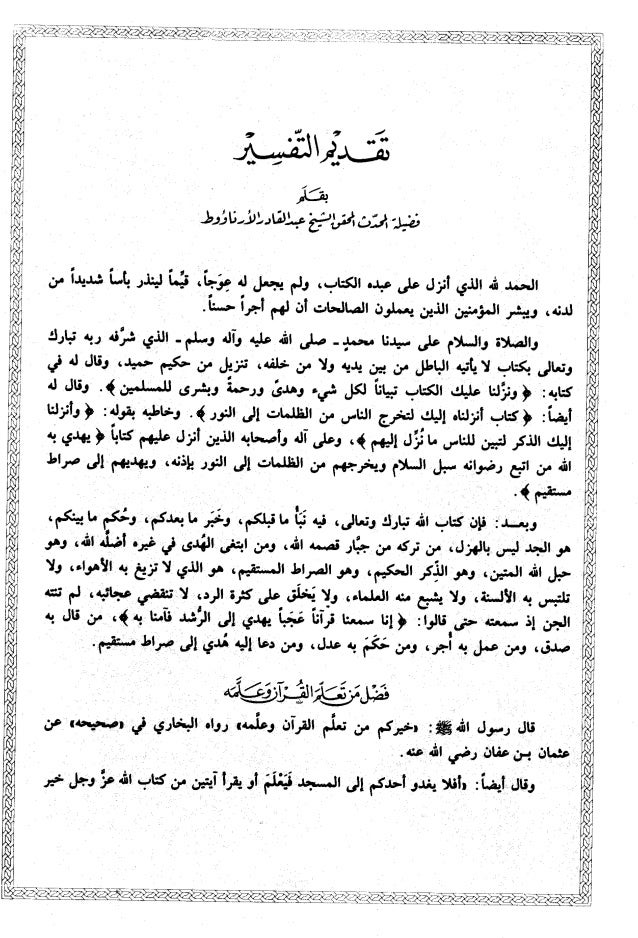 تقديم التفسير
بقلم
فضيلة المحدث المحقق الشيخ عبد القادر الأرناؤوط
الحمد لله الذي أنزل على عبده الكتاب، ولم يجعل له عِوَجاً، قيِّماً لينذر بأساً شديداً من
لدنه، ويبشر المؤمنين الذين يعملون الصالحات أن لهم أجراً حسناً.
والصلاة والسلام على سيدنا محمدٍ - صلى الله عليه وآله وسلم - الذي شرَّفه ربه تبارك
وتعالى بكتاب لا يأتيه الباطل من بين يديه ولا من خلفه، تنزيل من حكيم حميد، وقال له في
كتابه: ﴿ ونزَّلنا عليك الكتاب تبياناً لكل شيء وهدىً ورحمةً وبشرى للمسلمين ﴾. وقال له
أيضاً: ﴿ كتاب أنزلناه إليك لتخرج الناس من الظلمات إلى النور ﴾. وخاطبه بقوله: ﴿ وأنزلنا
إليك الذكر لتبين للناس ما نُزِّل إليهم ﴾، وعلى آله وأصحابه الذين أنزل عليهم كتاباً ﴿ يهدي به
الله من اتبع رضوانه سبل السلام ويخرجهم من الظلمات إلى النور بإذنه، ويهديهم إلى صراط
مستقيم ﴾.
وبعـد: فإن كتاب الله تبارك وتعالى، فيه نَبَأُ ما قبلكم، وخَبَر ما بعدكم، وحُكم ما بينكم،
هو الجد ليس بالهزل، من تركه من جبَّار قصمه الله، ومن ابتغى الهُدى في غيره أضلَّه الله، وهو
حبل الله المتين، وهو الذِّكر الحكيم، وهو الصراط المستقيم، هو الذي لا تزيغ به الأهواء، ولا
تلتبس به الألسنة، ولا يشبع منه العلماء، ولا يَخلَق على كثرة الرد، لا تنقضي عجائبه، لم تنته
الجن إذ سمعته حتى قالوا: ﴿ إنا سمعنا قرآناً عَجَباً يهدي إلى الرُّشد فآمنا به ﴾، من قال به
صدق، ومن عمل به أُجر، ومن حَكَمَ به عدل، ومن دعا إليه هُدي إلى صراط مستقيم.
فضل من تعلم القرآن وعلمه
قال رسول الله ﷺ: «خيركم من تعلَّم القرآن وعلَّمه» رواه البخاري في «صحيحه» عن
عثمان بـن عفان رضي الله عنه.
وقال أيضاً: «أفلا يغدو أحدكم إلى المسجد فَيَعْلَمَ أو يقرأ آيتين من كتاب الله عزَّ وجل خير